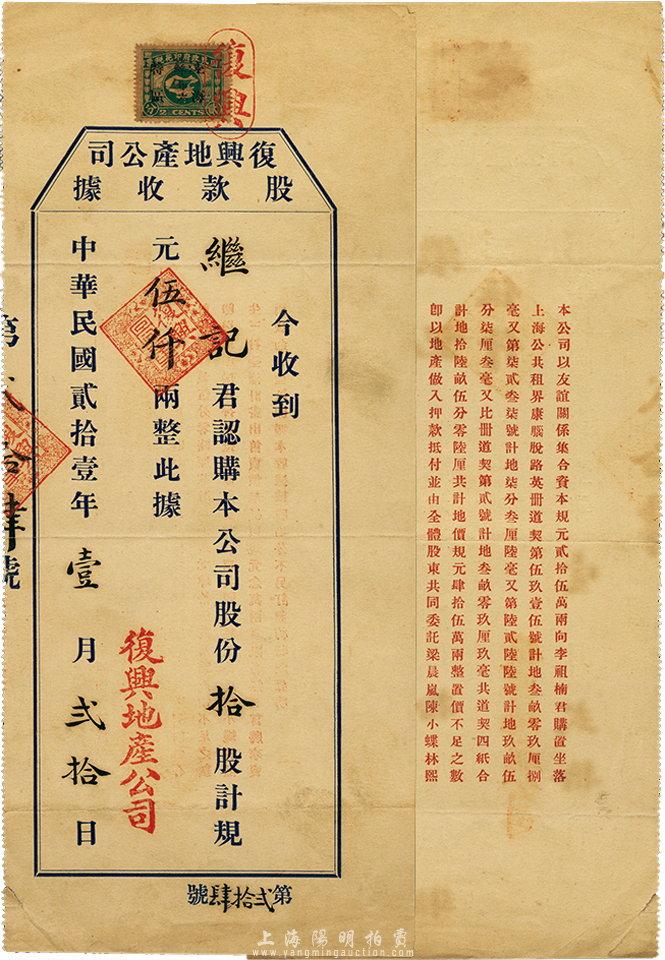 復興
2 CENTS
復興地產公司
股款收據
今收到
繼記君認購本公司股份拾股計規
元伍仟兩整此據
中華民國貳拾壹年壹月弍拾日
復興地產公司
第弍拾肆號
第弍拾肆號
本公司以友誼關係集合資本規元貳拾伍萬兩向李祖楠君購置坐落
上海公共租界康腦脫路英冊道契第伍玖壹伍號計地叁畝零玖厘捌
毫又第柒貳叁柒號計地柒分叁厘陸毫又第陸貳陸陸號計地玖畝伍
分柒厘叁毫又比冊道契第貳號計地叁畝零玖厘玖毫共道契四紙合
計地拾陸畝伍分零陸厘共計地價規元肆拾伍萬兩整置價不足之數
卽以地產做入押款抵付並由全體股東共同委託梁晨嵐陳小蝶林熙
上海陽明拍賣
www.yangmingauction.com